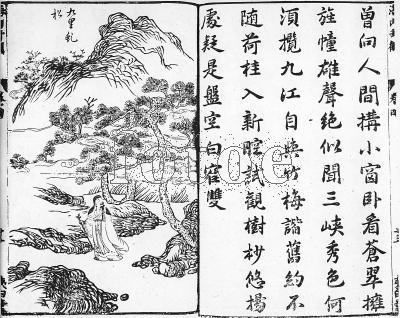 曾向人間搆小窗臥看蒼翠擁
旌幢雄聲絶似聞三峽秀色何
須攬九江自與竹梅諧舊約不
随荷柱入新腔試觀樹杪悠揚
處疑是盤空白寉雙
九里乱
松